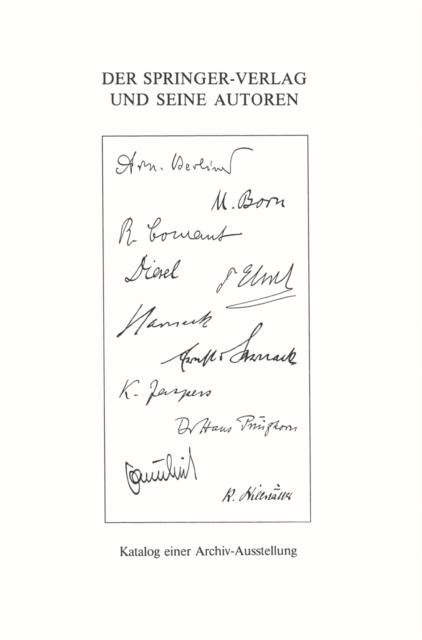 DER SPRINGER-VERLAG
UND SEINE AUTOREN
Arn. Berliner
M. Born
R. Courant
Diesel
Harnack
K. Jaspers
Dr Hans Prinzhorn
Katalog einer Archiv-Ausstellung